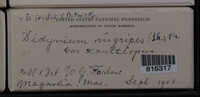 UNITED STATES NATIONAL HERBARIUM
Didymium nigripes (Lk.) Fr.
var xanthopus
816317
Coll & Det. W. G. Farlow
Magnolia Mass. Sept 1903